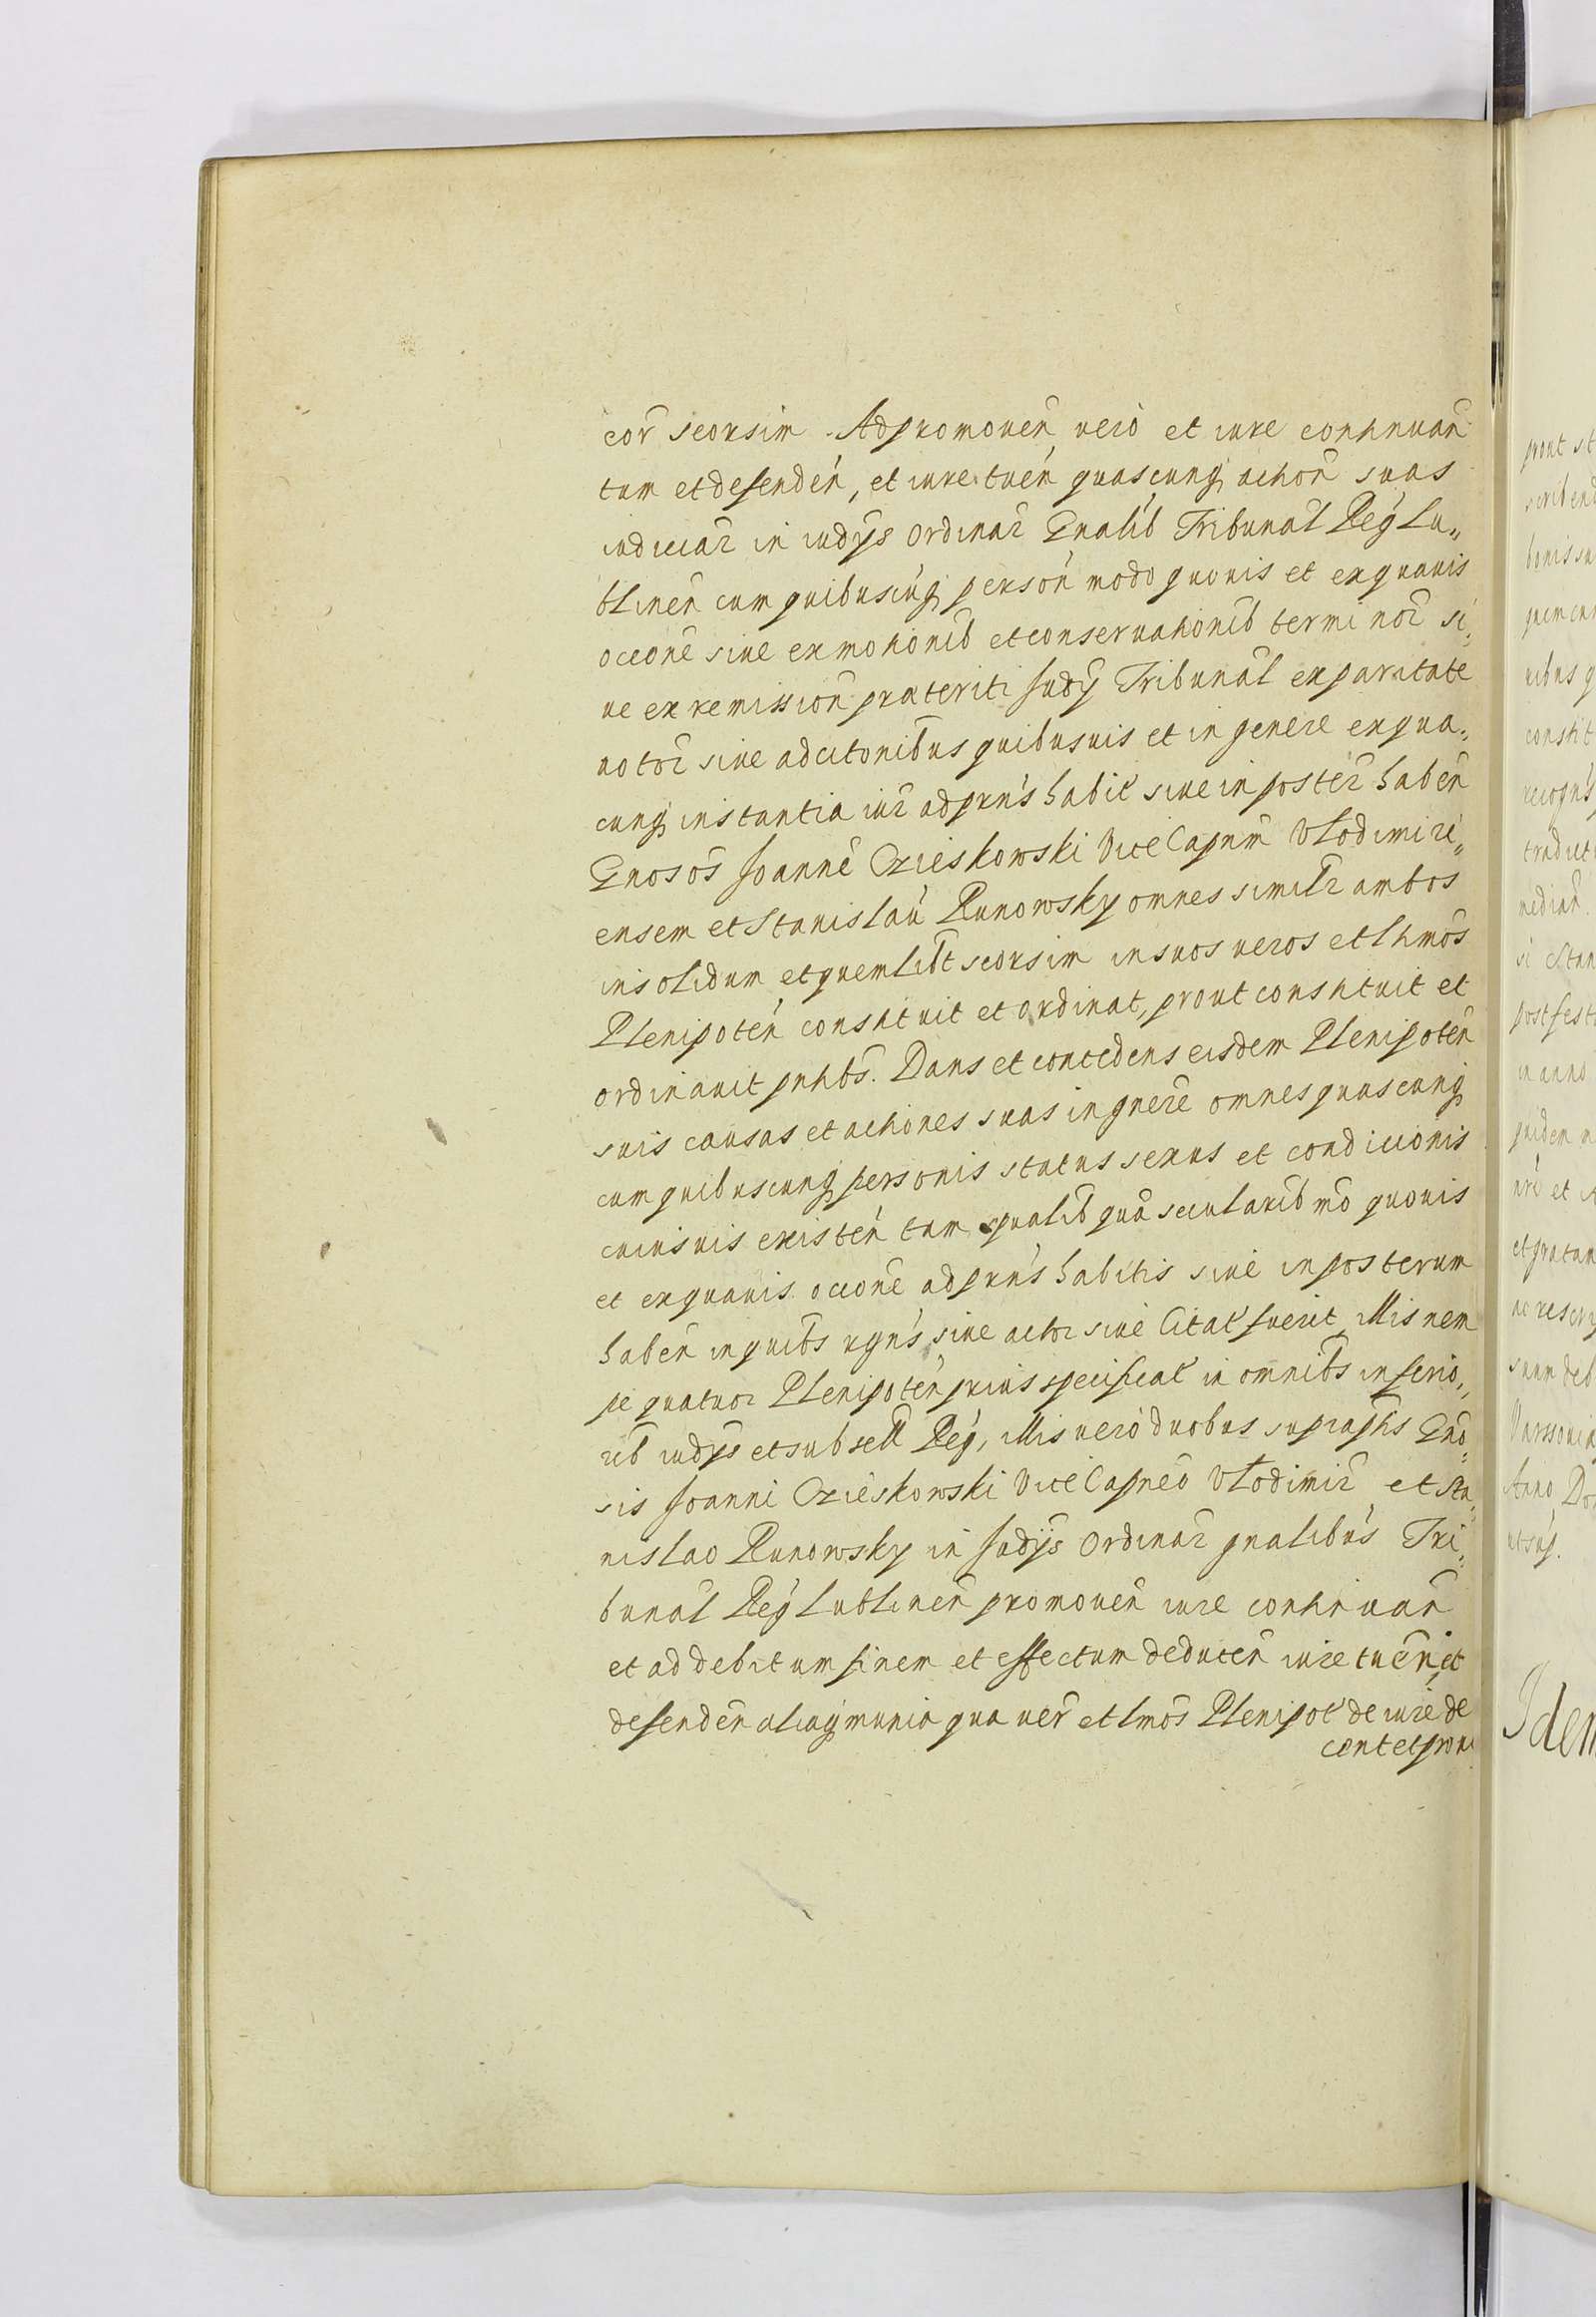 eor̃ seorsim. Ad promouen̄ uero et iure continuan̄
tum et defenden̄, et iure tuen̄ quascunq; action̄ suas
iudiciar̄ in iudijs ordinar̄ Gnalib Tribunal Reg̃ Lu„
blinen̄ cum quibuscūq; person̄ modo quouis et ex quauis
occone siue ex motionib et conseruationib terminor̄ si„
ue ex remission̄ praeteriti Judij Tribunal ex paritate
uotor̄ siue ad citonibus quibusuis et in genere ex qua„
cunq; instantia iur̄ ad prn̄s habit siue in poster̄ haben̄
Gnosos Joannē Czieskowski Vice Capnm̄ Vlodimiri„
ensem et Stanislaū Runowsky omnes similr̄ ambos
insolidum et quemlibt seorsim in suos ueros et lhmōs
Plenipoten̄ constituit et ordinat, prout constituit et
ordinauit pnhbs. Dans et concedens eisdem Plenipoten̄
suis causas et actiones suas in gnere omnes quascunq;
cum quibuscunq; personis status sexus et condicionis
cuiusuis existen̄ tam spualib quā secularib mō quouis
et ex quauis occone ad prn̄s habitis siue in posterum
haben̄ in quibs rgn̄s, siue actor siue Citat fuerit, Illis nem
pe quatuor Plenipoten̄ prius specificat in omnibs inferio„
rib iudijs et subsell Reg̃, Illis uero duobus supraphis Gno„
sis Joanni Czieskowski Vice Capneo Vlodimir̄ et Sta„
nislao Runowsky in Judijs Ordinar̄ gnalibus Tri„
bunal Reg̃ Lublinen̄ promouen̄ iure continuan̄
et ad debitum finem et effectum deducen̄ iure tuen̄, et
defenden̄ aliaq; munia qua uer̄ et lmōs Plenipot de iure de
cent et proue
prout st
scribend
bonis su
quemcun
uibus q
constit
recogn̄s
traduct
median̄
si Stan
post fest
in anno
quidem
nri et
et gratam
ac rescry
suum deb
Varsouia
Anno Do
utsup̄.
Idem